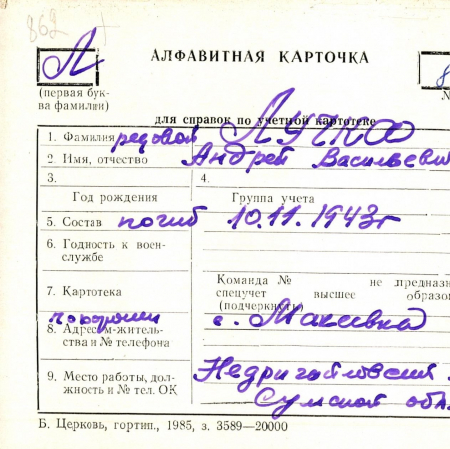 862
Л
АЛФАВИТНАЯ КАРТОЧКА
8
(первая бук-
ва фамилии)
№
для справок по учетной картотеке
1. Фамилия рядовой ЛУЧКО
2. Имя, отчество Андрей Васильеви
3.
4.
Год рождения
Группа учета
5. Состав погиб 10.11.1943г
6. Годность к воен-
службе
7. Картотека
Команда № не предназна
спецучет высшее образов
(подчеркнуть)
похоронен с. Макеевка
8. Адрес м-житель-
ства и № телефона
9. Место работы, дол-
жность и № тел. ОК
Недригайловский
Сумской обл.
Б. Церковь, гортип., 1985, з. 3589—20000